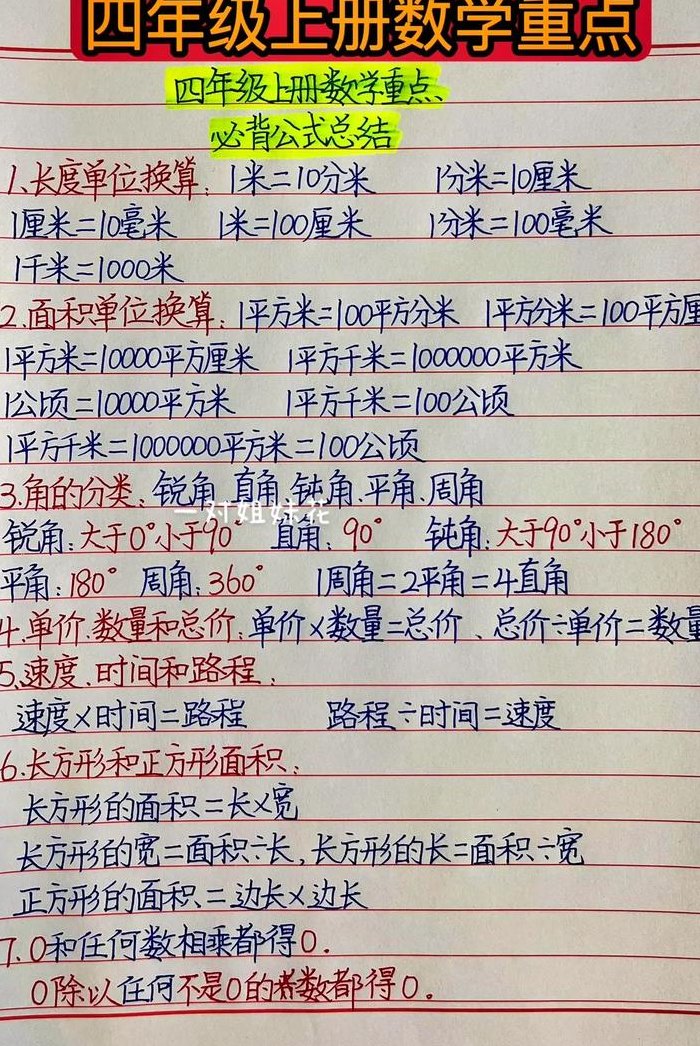 四年级上册数学重点
四年级上册数学重点
必背公式总结
1.长度单位换算:1米=10分米 1分米=10厘米
1厘米=10毫米 1米=100厘米 1分米=100毫米
1千米=1000米
2.面积单位换算:1平方米=100平方分米 1平方分米=100平方厘
1平方米=10000平方厘米 1平方千米=1000000平方米
1公顷=10000平方米 1平方千米=100公顷
1平方千米=1000000平方米=100公顷
3.角的分类:锐角、直角、钝角、平角、周角
一对姐妹花
锐角:大于0°小于90° 直角:90° 钝角:大于90°小于180°
平角:180° 周角:360° 1周角=2平角=4直角
4.单价、数量和总价:单价×数量=总价、总价÷单价=数量
5.速度、时间和路程:
速度×时间=路程 路程÷时间=速度
6.长方形和正方形面积:
长方形的面积=长×宽
长方形的宽=面积÷长,长方形的长=面积÷宽
正方形的面积=边长×边长
7.0和任何数相乘都得0.
0除以任何不是0的数都得0。